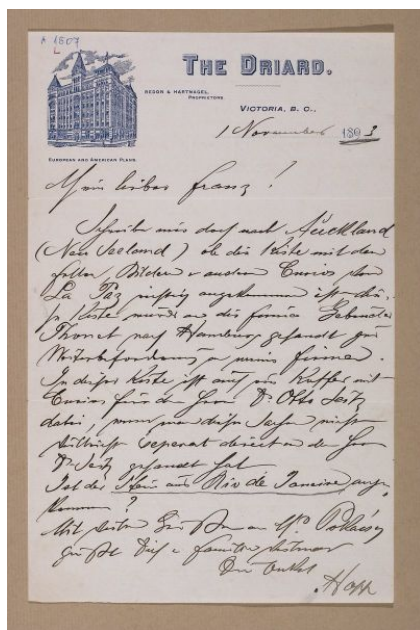 A 1507
L
THE DRIARD.
REDON & HARTNAGEL,
PROPRIETORS.
VICTORIA, B. C.,
1 November 1893
EUROPEAN AND AMERICAN PLANS.
Mein lieber Franz!
Schreibe mir doch nach Auckland
(Neu Seeland) ob die Kiste mit den
Bildern u andern Curios von
La Paz richtig angekommen ist
Kiste wurde an die Firma Gebrüder
Thonet nach Hamburg gesandt zur
Weiterbeförderung an meine Firma.
In dieser Kiste ist auch ein Koffer mit
Curios für den Herrn Dr. Otto Seitz
dabei, wenn man diese Sachen nicht
vielleicht separat direct an den Herrn
Dr. Seitz gesandt hat
Ist der aus Rio de Janeiro ange
kommen?
Mit Grüßen an
grüßt Dich u Familie
Dein Onkel
Hopp